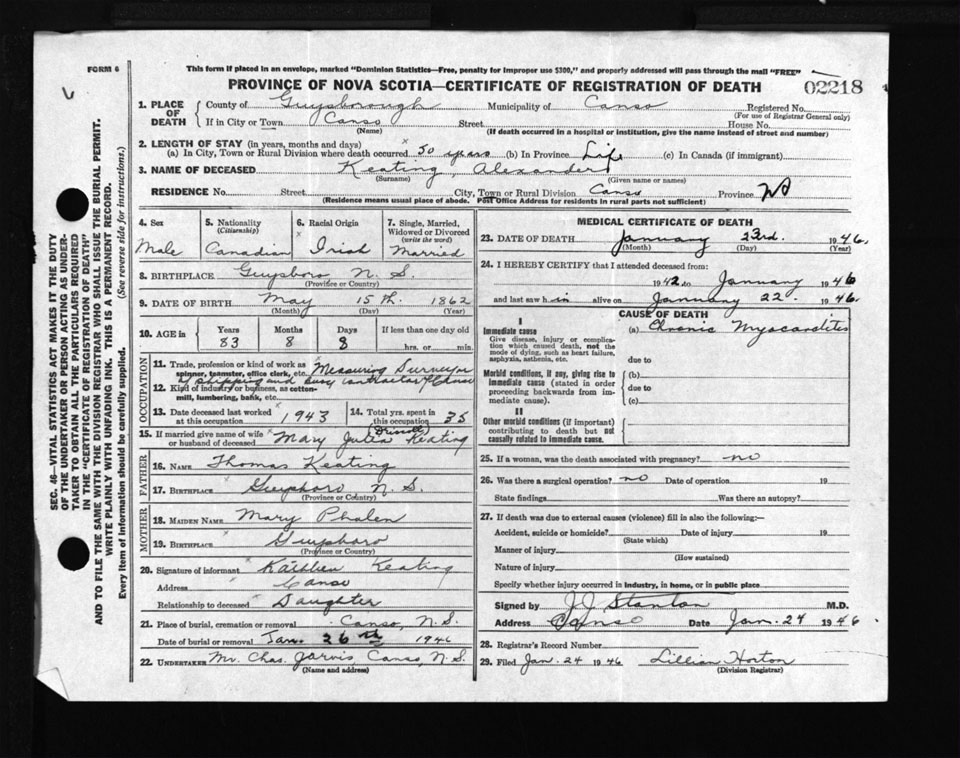 FORM 6
This form if placed in an envelope, marked "Dominion Statistics—Free, penalty for improper use $300," and properly addressed will pass through the mail "FREE"
PROVINCE OF NOVA SCOTIA—CERTIFICATE OF REGISTRATION OF DEATH
02218
SEC. 46—VITAL STATISTICS ACT MAKES IT THE DUTY
OF THE UNDERTAKER OR PERSON ACTING AS UNDER-
TAKER TO OBTAIN ALL THE PARTICULARS REQUIRED
IN THE "CERTIFICATE OF REGISTRATION OF DEATH"
AND TO FILE THE SAME WITH THE DIVISION REGISTRAR WHO SHALL ISSUE THE BURIAL PERMIT.
WRITE PLAINLY WITH UNFADING INK. THIS IS A PERMANENT RECORD.
Every item of information should be carefully supplied. (See reverse side for instructions.)
1. PLACE OF DEATH
County of Guysborough Municipality of Canso Registered No.
(For use of Registrar General only)
If in City or Town Canso Street House No.
(Name) (If death occurred in a hospital or institution, give the name instead of street and number)
2. LENGTH OF STAY (in years, months and days)
(a) In City, Town or Rural Division where death occurred 50 years (b) In Province Life (c) In Canada (if immigrant)
3. NAME OF DECEASED Keating, Alexander
(Surname) (Given name or names)
RESIDENCE No. Street City, Town or Rural Division Canso Province NS
(Residence means usual place of abode. Post Office Address for residents in rural parts not sufficient)
4. Sex 5. Nationality (Citizenship) 6. Racial Origin 7. Single, Married, Widowed or Divorced (write the word)
Male Canadian Irish Married
8. BIRTHPLACE Guysboro N. S.
(Province or Country)
9. DATE OF BIRTH May 15th. 1862
(Month) (Day) (Year)
10. AGE in Years Months Days If less than one day old
83 8 8 hrs. or min.
OCCUPATION
11. Trade, profession or kind of work as Measuring Surveyor
spinner, teamster, office clerk, etc.
of shipping and
12. Kind of industry or business, as cotton-
mill, lumbering, bank, etc.
13. Date deceased last worked at this occupation 1943 14. Total yrs. spent in this occupation 35
15. If married give name of wife or husband of deceased Mary Julia (Driscoll) Keating
FATHER
16. NAME Thomas Keating
17. BIRTHPLACE Guysboro N. S.
(Province or Country)
MOTHER
18. MAIDEN NAME Mary Phalen
19. BIRTHPLACE Guysboro
(Province or Country)
20. Signature of informant Kathleen Keating
Address Canso
Relationship to deceased Daughter
21. Place of burial, cremation or removal Canso, N.S.
Date of burial or removal Jan. 26th 1946
22. UNDERTAKER Mr. Chas. Jarvis Canso, N.S.
(Name and address)
MEDICAL CERTIFICATE OF DEATH
23. DATE OF DEATH January 23rd. 1946.
(Month) (Day) (Year)
24. I HEREBY CERTIFY that I attended deceased from:
1942 to January 1946
and last saw him alive on January 22. 1946.
CAUSE OF DEATH
I
Immediate cause (a) Chronic Myocarditis
Give disease, injury or complica-
tion which caused death, not the
mode of dying, such as heart failure,
asphyxia, asthenia, etc.
due to
Morbid conditions, if any, giving rise to (b)
immediate cause (stated in order due to
proceeding backwards from im-
mediate cause). (c)
II
Other morbid conditions (if important)
contributing to death but not
causally related to immediate cause.
25. If a woman, was the death associated with pregnancy? no
26. Was there a surgical operation? no Date of operation 19
State findings Was there an autopsy?
27. If death was due to external causes (violence) fill in also the following:—
Accident, suicide or homicide? Date of injury 19
(State which)
Manner of injury
(How sustained)
Nature of injury
Specify whether injury occurred in industry, in home, or in public place
Signed by J.J. Stanton M.D.
Address Canso Date Jan. 24 1946.
28. Registrar's Record Number
29. Filed Jan. 24 1946 Lillian Horton
(Division Registrar)